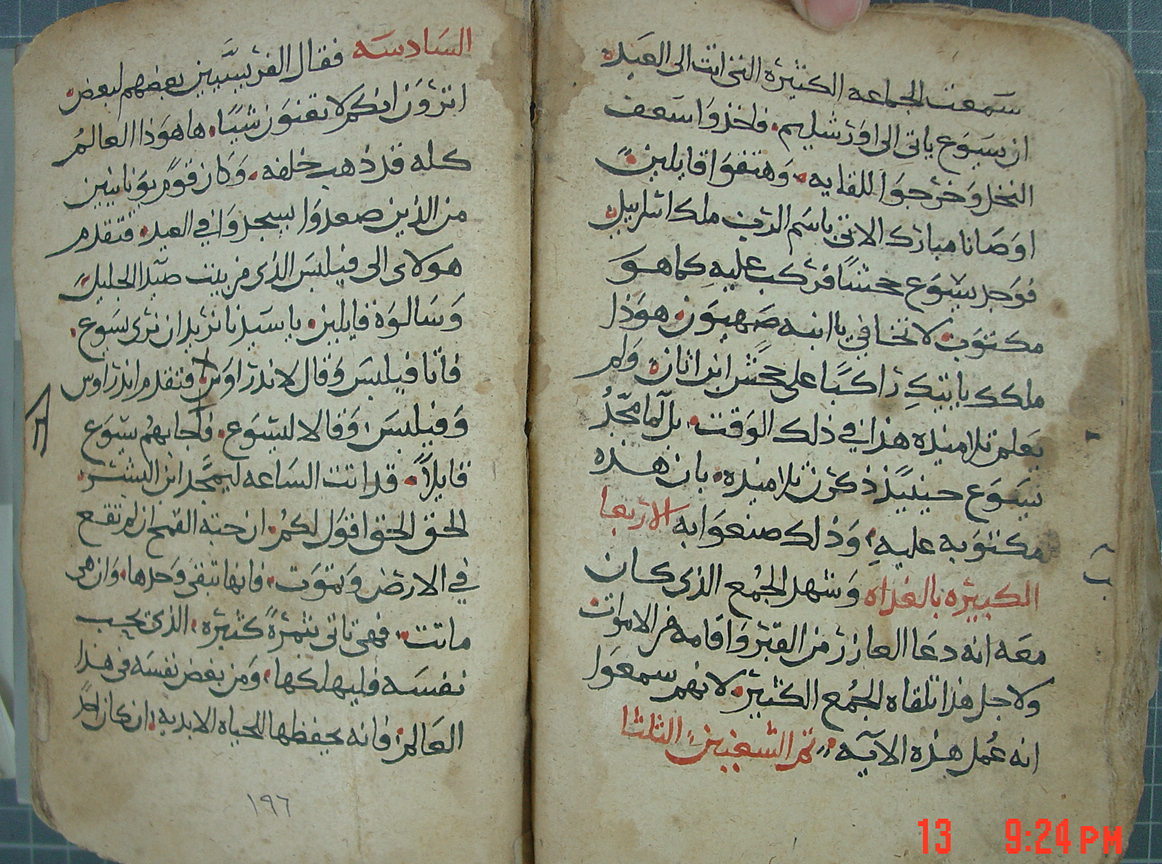 سمعت الجماعه الكثيره التي اتت الى العيد
ان يسوع ياتي الى اورشليم. فاخذوا سعف
النخل وخرجوا للقايه. وهتفوا قايلين
اوصانا مبارك الاتي باسم الرب ملك اسراييل
فوجد يسوع جحشًا فركب عليه كما هو
مكتوب لا تخافي يا ابنه صهيون. هوذا
ملكك ياتيك راكبًا على جحش ابن اتان. ولم
يعلم تلاميذه هذا في ذلك الوقت. بل لما مجد
يسوع حينيذ ذكر تلاميذه. بان هذه
مكتوبه عليه. وذلك صنعوا به الاربعا
الكبيره بالغداه وشهد الجمع الذي كان
معه انه دعا العازر من القبر واقامه من الاموات
ولاجل هذا تلقاه الجمع الكثير. لانهم سمعوا
انه عمل هذه الايه. تم الشعنين. الثلثا
السادسه فقال الفريسيين بعضهم لبعض
اترون انكم لا تغنون شيًا. ها هوذا العالم
كله قد ذهب خلفه. وكان قوم يونانيين
من الذين صعدوا ليسجدوا في العيد. فتقدم
هولاى الى فيلبس الذي من بيت صيدا الجليل
وسالوه قايلين. يا سيدنا نريد ان نرى يسوع.
فاتا فيلبس وقال لاندراوس. فتقدم اندراوس
وفيلبس. وقالا ليسوع. فاجابهم يسوع
قايلاً. قد اتت الساعه ليمجد ابن البشر.
الحق الحق اقول لكم. ان حبه القمح ان لم تقع
في الارض وتموت. فانها تبقى وحدها. وان هي
ماتت. فهي تاتي بثمرة كثيره. الذي يحب
نفسه فليهلكها. ومن بغض نفسه في هذا
العالم. فانه يحفظها للحياه الابديه. ان كان احد
١٩٦
13 9:24 PM